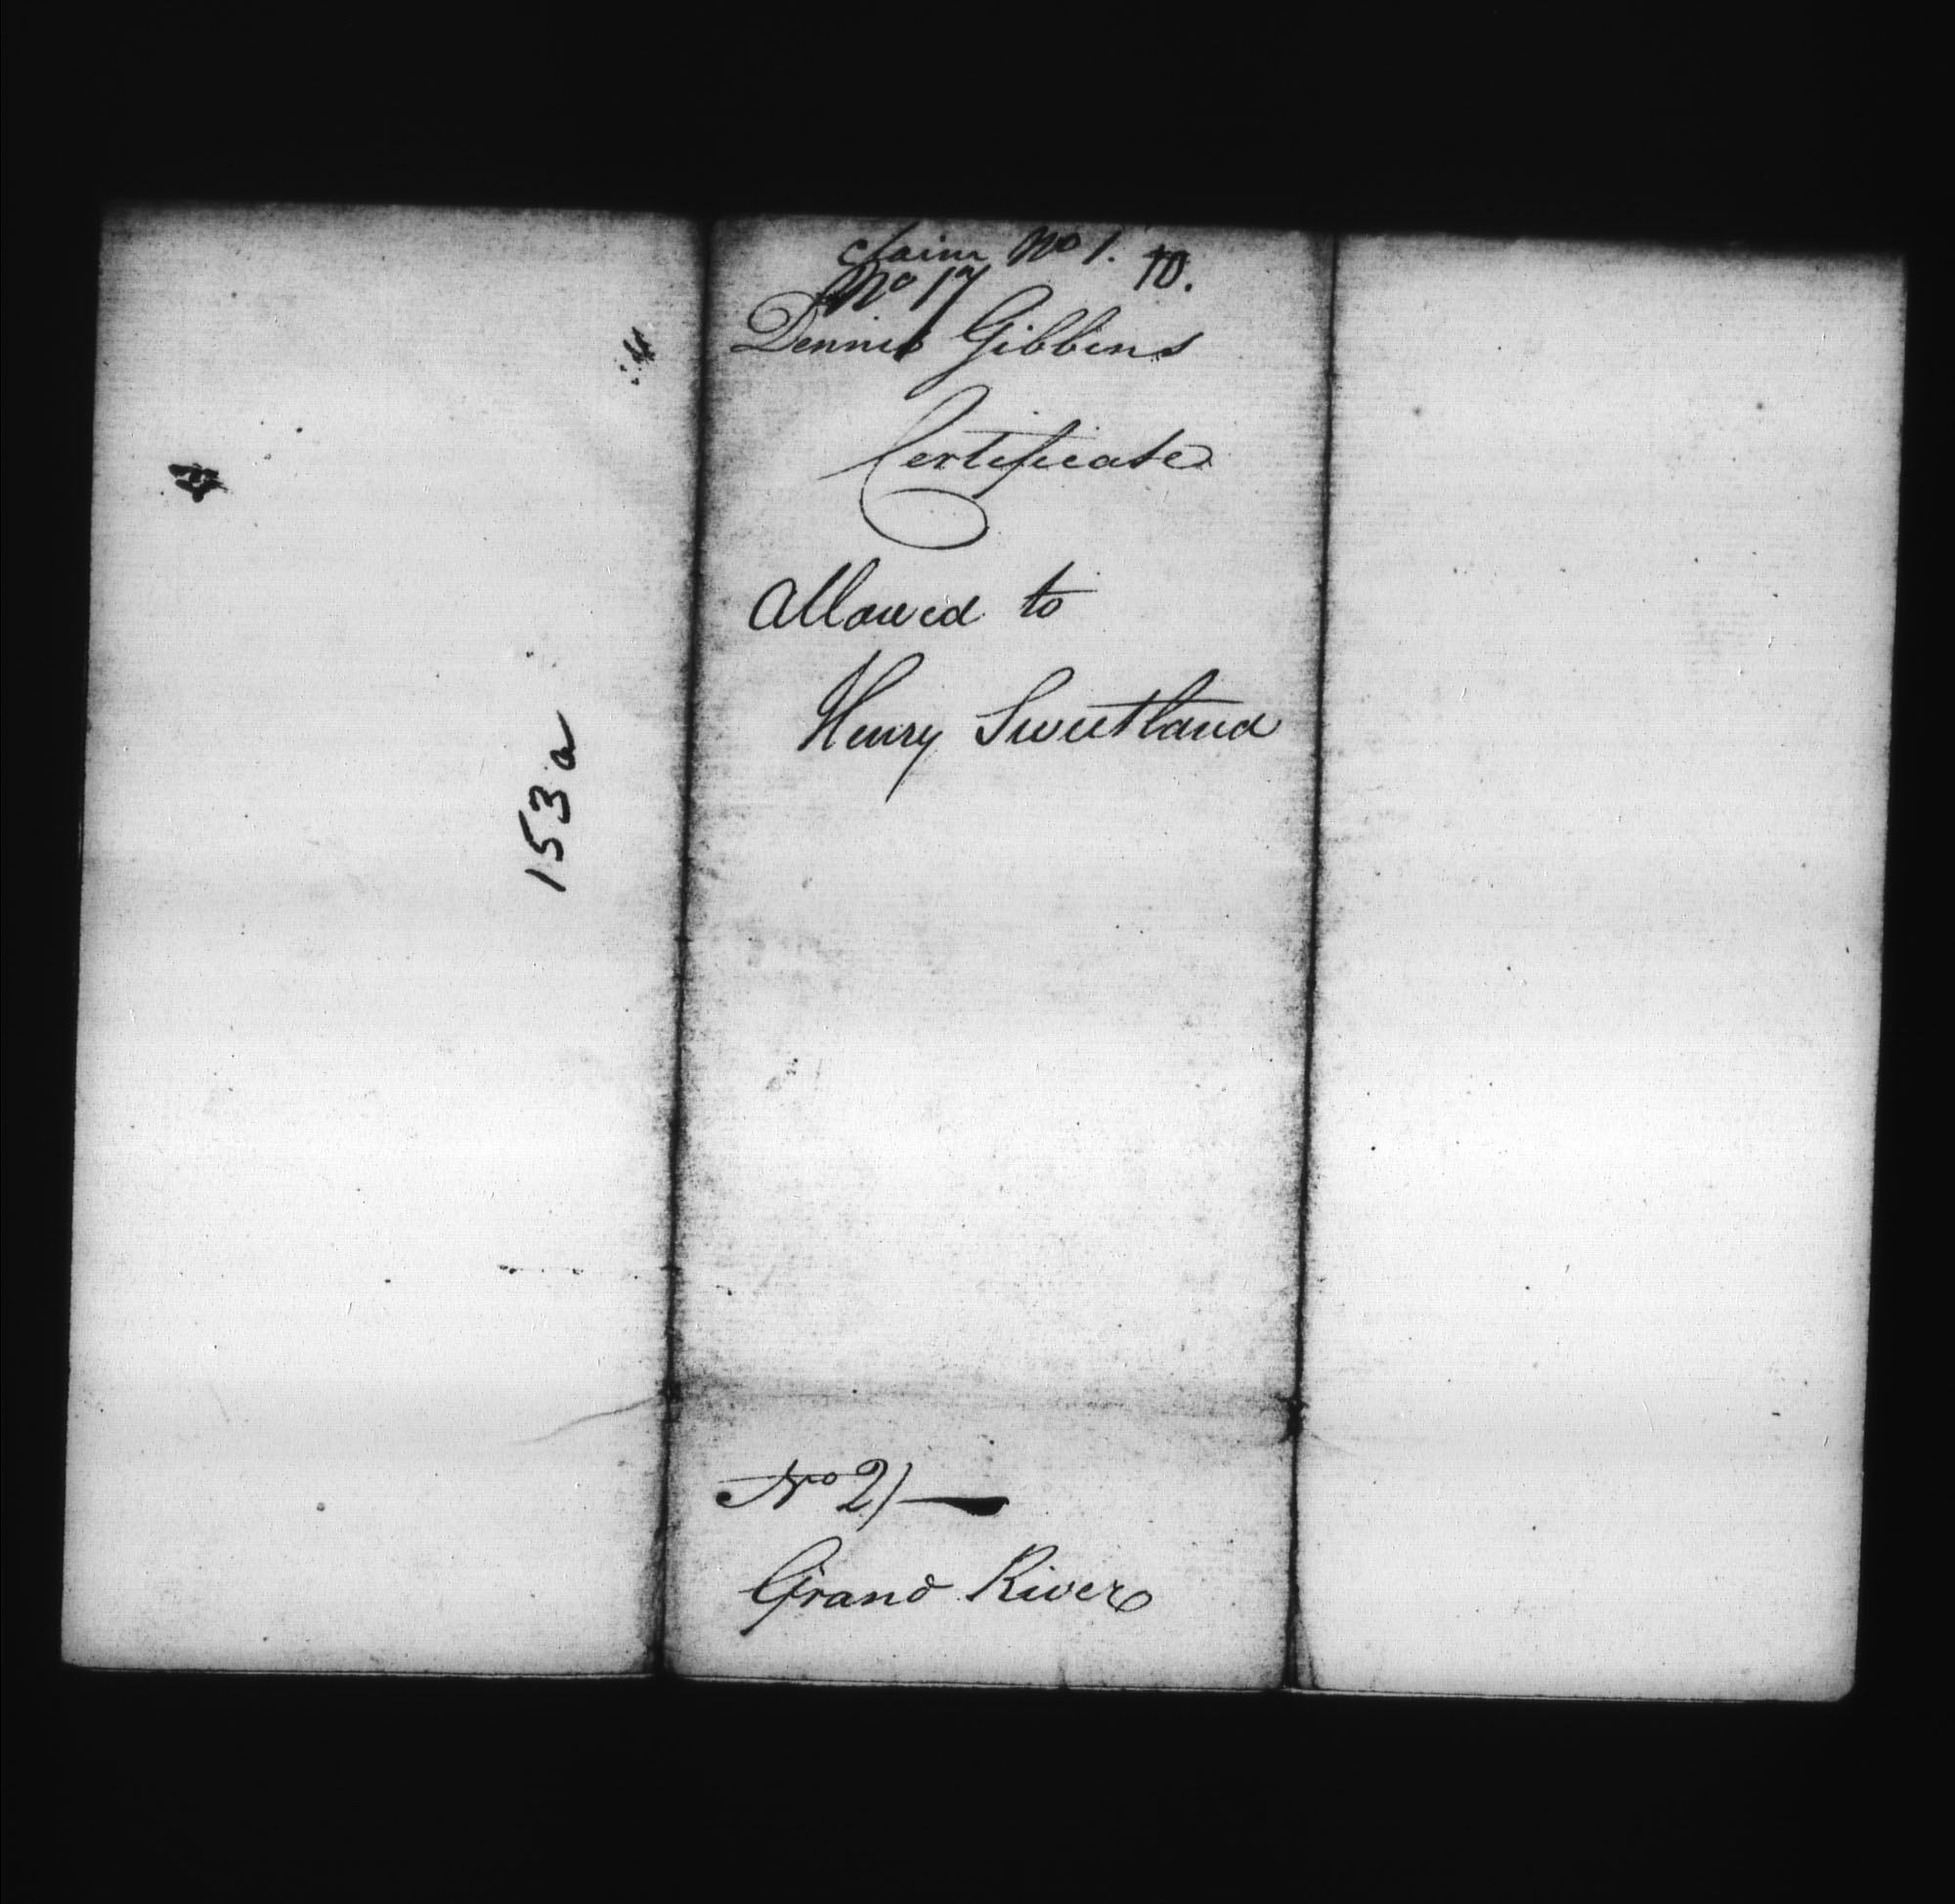 claim No 1.
No 17 10.
Dennis Gibbins
Certificate
Allowed to
Henry Sweetland
153 a
No 21
Grand River